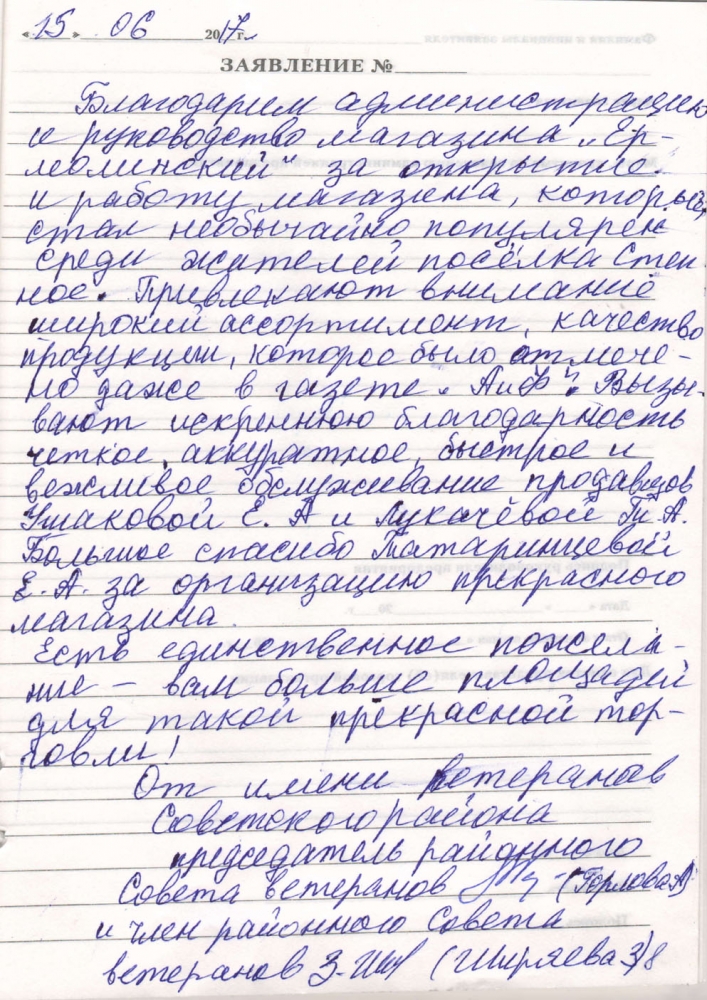 «15» 06 2017г.
ЗАЯВЛЕНИЕ №
Благодарим администрацию
и руководство магазина „Ер-
молинский“ за открытие
и работу магазина, который
стал необычайно популярен
среди жителей посёлка Степ-
ное. Привлекают внимание
широкий ассортимент, качество
продукции, которое было отмече-
но даже в газете „АиФ“. Вызы-
вают искреннюю благодарность
четкое, аккуратное, быстрое и
вежливое обслуживание продавцов
Ушаковой Е. А и Лукачёвой Т. А.
Большое спасибо Татаринцевой
Е. А. за организацию прекрасного
магазина.
Есть единственное пожела-
ние – вам больше площадей
для такой прекрасной тор-
говли!
От имени ветеранов
Советского района
председатель районного
Совета ветеранов (Горлова А)
и член районного Совета
ветеранов (Ширяева З)